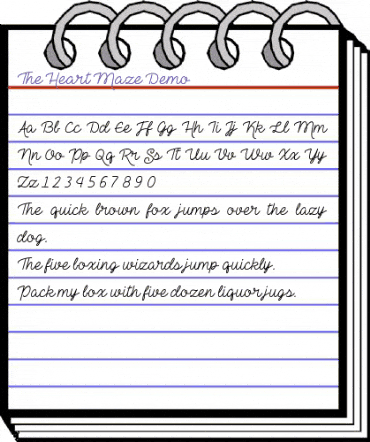 The Heart Maze Demo
Aa Bb Cc Dd Ee Ff Gg Hh Ii Jj Kk Ll Mm
Nn Oo Pp Qq Rr Ss Tt Uu Vv Ww Xx Yy
Zz 1 2 3 4 5 6 7 8 9 0
The quick brown fox jumps over the lazy
dog.
The five boxing wizards jump quickly.
Pack my box with five dozen liquor jugs.